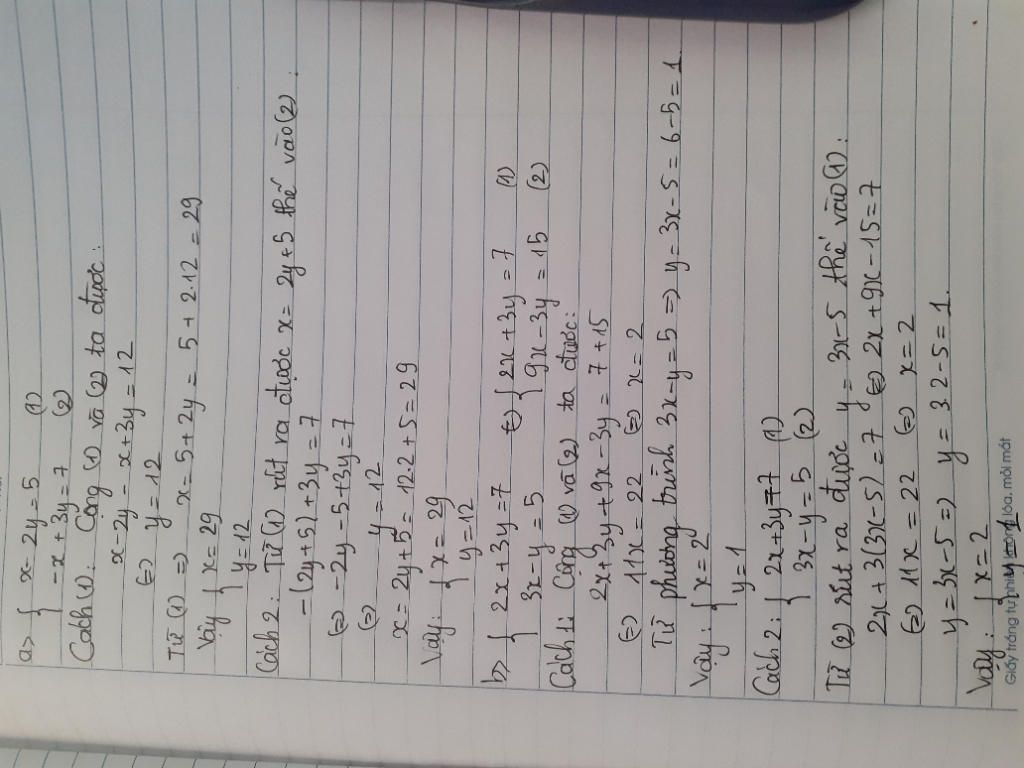 a> { x - 2y = 5 (1)
-x + 3y = 7 (2)
Cách (1): Cộng (1) và (2) ta được:
x - 2y - x + 3y = 12
(=) y = 12
Từ (1) => x = 5 + 2y = 5 + 2.12 = 29
Vậy { x = 29
y = 12
Cách 2: Từ (1) rút ra được x = 2y + 5 thế vào (2):
-(2y + 5) + 3y = 7
(=) -2y - 5 + 3y = 7
(=) y = 12
x = 2y + 5 = 12.2 + 5 = 29
Vậy: { x = 29
y = 12
b> { 2x + 3y = 7 (=) { 2x + 3y = 7 (1)
3x - y = 5 9x - 3y = 15 (2)
Cách 1: Cộng (1) và (2) ta được:
2x + 3y + 9x - 3y = 7 + 15
(=) 11x = 22 (=) x = 2
Từ phương trình 3x - y = 5 => y = 3x - 5 = 6 - 5 = 1.
Vậy: { x = 2
y = 1
Cách 2: { 2x + 3y = 7 (1)
3x - y = 5 (2)
Từ (2) rút ra được y = 3x - 5 thế vào (1):
2x + 3(3x - 5) = 7 (=) 2x + 9x - 15 = 7
(=) 11x = 22 (=) x = 2
y = 3x - 5 => y = 3.2 - 5 = 1.
Vậy: { x = 2
y = 1
Giấy trắng tự nhiên, không lóa, mỏi mắt